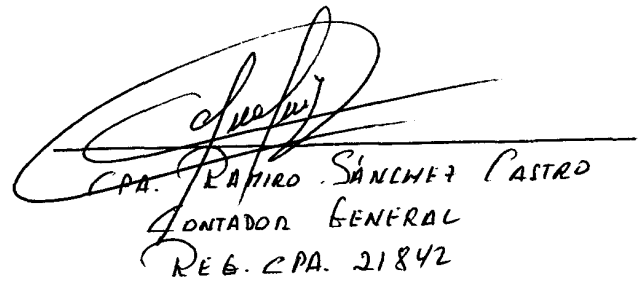 CPA. RAMIRO SÁNCHEZ CASTRO
CONTADOR GENERAL
REG. CPA. 21842